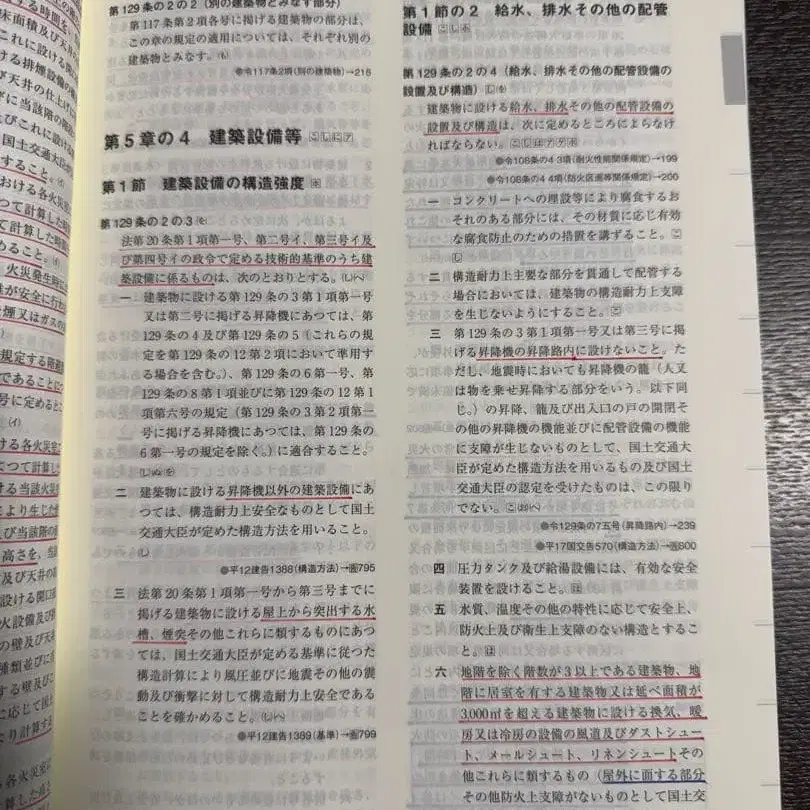 する時間を、
床面積及び天井の
これに設ける
ける排煙設備の
び天井の仕上げに
ずに当該階の
及びこれに設け
、国土交通大
すること。
おける各火災
つて計算した時
つて計算した時
めること。
火災発生時に
者が安全に行わ
煙又はガスの
規定する階避難
であることに
号に定めると
ける各火災室に
つて計算した
ける当該火災
により生じた
及び当該階の
高さを、当
及び天井の
設ける開口
火設備及び
の壁及び天
種類並びに
する壁及び
に応じて国
より計算す
、各火災室
第129条の2の2（別の建築物とみなす部分）
第117条第2項各号に掲げる建築物の部分は、
この章の規定の適用については、それぞれ別の
建築物とみなす。
●令117条2項(別の建築物)→216
第5章の4　建築設備等
第1節　建築設備の構造強度
第129条の2の3
法第20条第1項第一号、第二号イ、第三号イ及
び第四号イの政令で定める技術的基準のうち建
築設備に係るものは、次のとおりとする。
一　建築物に設ける第129条の3第1項第一号
又は第二号に掲げる昇降機にあつては、第
129条の4及び第129条の5（これらの規
定を第129条の12第2項において準用す
る場合を含む。）、第129条の6第一号、第
129条の8第1項並びに第129条の12第1
項第六号の規定（第129条の3第2項第一
号に掲げる昇降機にあつては、第129条の
6第一号の規定を除く。）に適合すること。
二　建築物に設ける昇降機以外の建築設備にあ
つては、構造耐力上安全なものとして国土
交通大臣が定めた構造方法を用いること。
●平12建告1388(構造方法)→告795
三　法第20条第1項第一号から第三号までに
掲げる建築物に設ける屋上から突出する水
槽、煙突その他これらに類するものにあつ
ては、国土交通大臣が定める基準に従つた
構造計算により風圧並びに地震その他の震
動及び衝撃に対して構造耐力上安全である
ことを確かめること。
●平12建告1389(基準)→告799
第1節の2　給水、排水その他の配管
設備
第129条の2の4（給水、排水その他の配管設備の
設置及び構造）
建築物に設ける給水、排水その他の配管設備の
設置及び構造は、次に定めるところによらなけ
ればならない。
●令108条の4 3項(耐火性能関係規定)→199
●令108条の4 4項(防火区画等関係規定)→200
一　コンクリートへの埋設等により腐食するお
それのある部分には、その材質に応じ有効
な腐食防止のための措置を講ずること。
二　構造耐力上主要な部分を貫通して配管する
場合においては、建築物の構造耐力上支障
を生じないようにすること。
三　第129条の3第1項第一号又は第三号に掲
げる昇降機の昇降路内に設けないこと。た
だし、地震時においても昇降機の籠（人又
は物を乗せ昇降する部分をいう。以下同
じ。）の昇降、籠及び出入口の戸の開閉そ
の他の昇降機の機能並びに配管設備の機能
に支障が生じないものとして、国土交通大
臣が定めた構造方法を用いるもの及び国土
交通大臣の認定を受けたものは、この限り
でない。
●令129条の7五号(昇降路内)→239
●平17国交告570(構造方法)→告800
四　圧力タンク及び給湯設備には、有効な安全
装置を設けること。
五　水質、温度その他の特性に応じて安全上、
防火上及び衛生上支障のない構造とするこ
と。
六　地階を除く階数が3以上である建築物、地
階に居室を有する建築物又は延べ面積が
3,000㎡を超える建築物に設ける換気、暖
房又は冷房の設備の風道及びダストシュー
ト、メールシュート、リネンシュートその
他これらに類するもの（屋外に面する部分
その他防火上支障がないものとして国土交